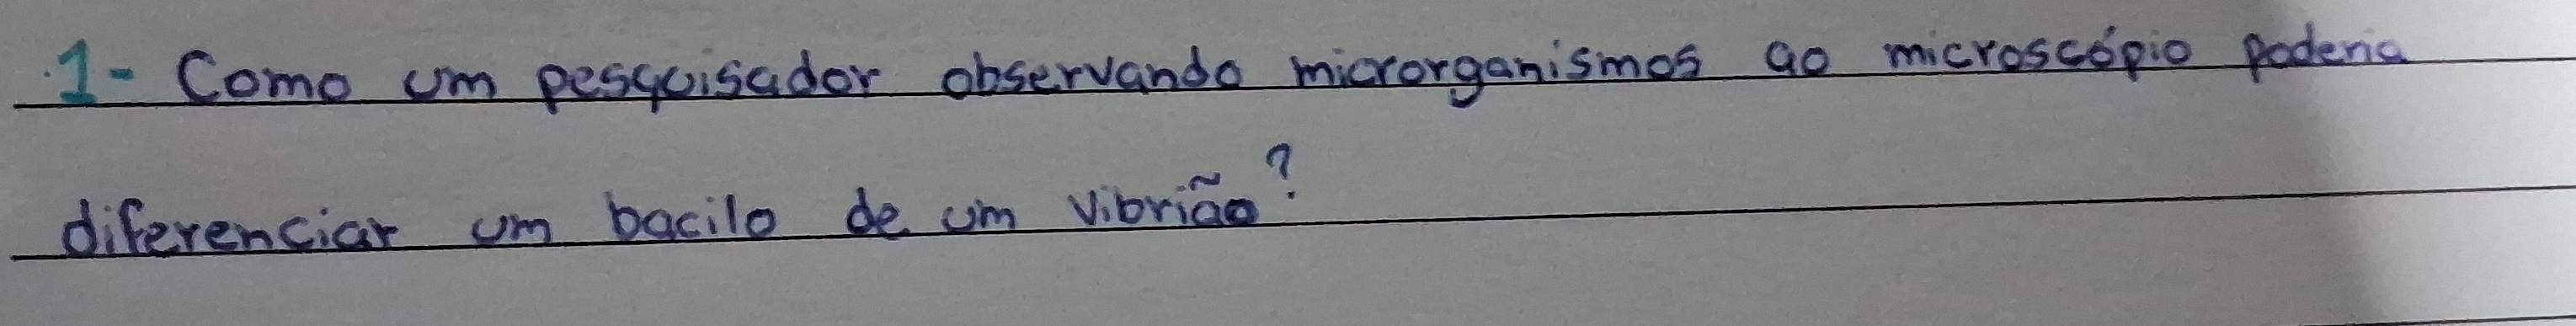 1- Como um pesquisador observando microrganismos ao microscópio poderia
diferenciar um bacilo de um vibrião?